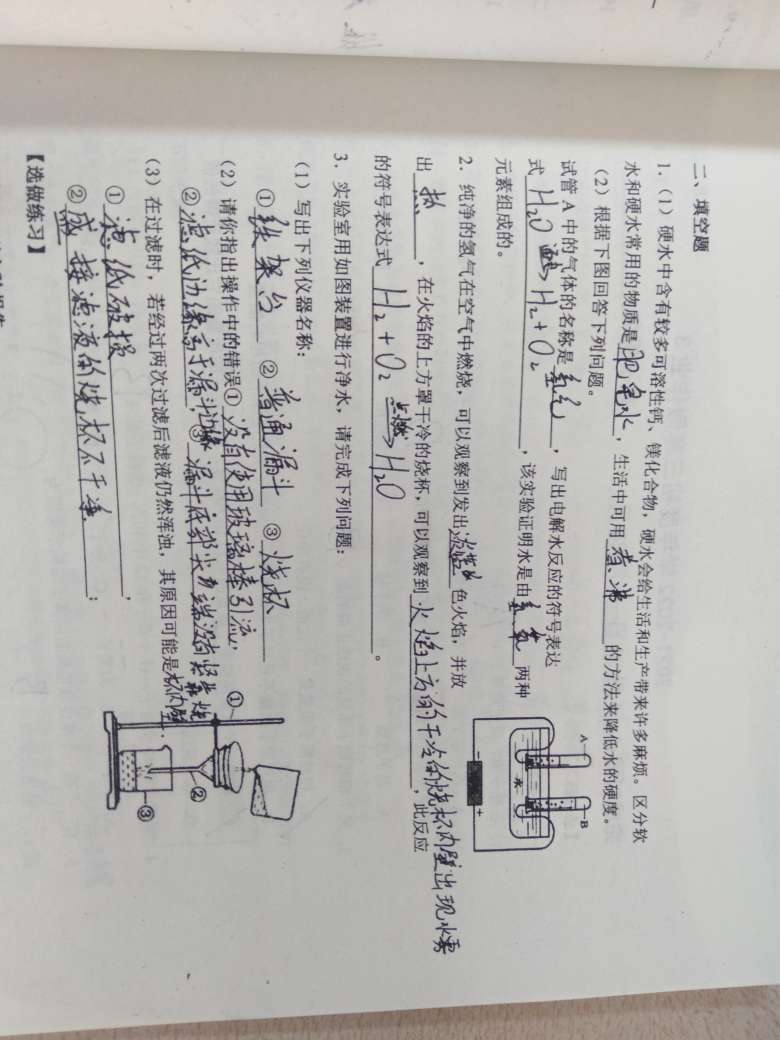 二、填空题
1. (1) 硬水中含有较多可溶性钙、镁化合物，硬水会给生活和生产带来许多麻烦。区分软
水和硬水常用的物质是肥皂水，生活中可用煮沸的方法来降低水的硬度。
(2) 根据下图回答下列问题。
试管 A 中的气体的名称是氢气，写出电解水反应的符号表达
式 H₂O 通电→ H₂ + O₂，该实验证明水是由氢、氧两种
元素组成的。
A
B
水
- +
2. 纯净的氢气在空气中燃烧，可以观察到发出淡蓝色火焰，并放
出热，在火焰的上方罩干冷的烧杯，可以观察到火焰上方的干冷的烧杯内壁出现水雾，此反应
的符号表达式 H₂ + O₂ 点燃→ H₂O。
3. 实验室用如图装置进行净水，请完成下列问题：
(1) 写出下列仪器名称：
① 铁架台 ② 普通漏斗 ③ 烧杯
(2) 请你指出操作中的错误① 没有使用玻璃棒引流，
② 滤纸边缘高于漏斗边缘，③ 漏斗底部尖端没有紧靠烧
杯内壁
(3) 在过滤时，若经过两次过滤后滤液仍然浑浊，其原因可能是
① 滤纸破损，
② 盛接滤液的烧杯不干净；
①
②
③
【选做练习】